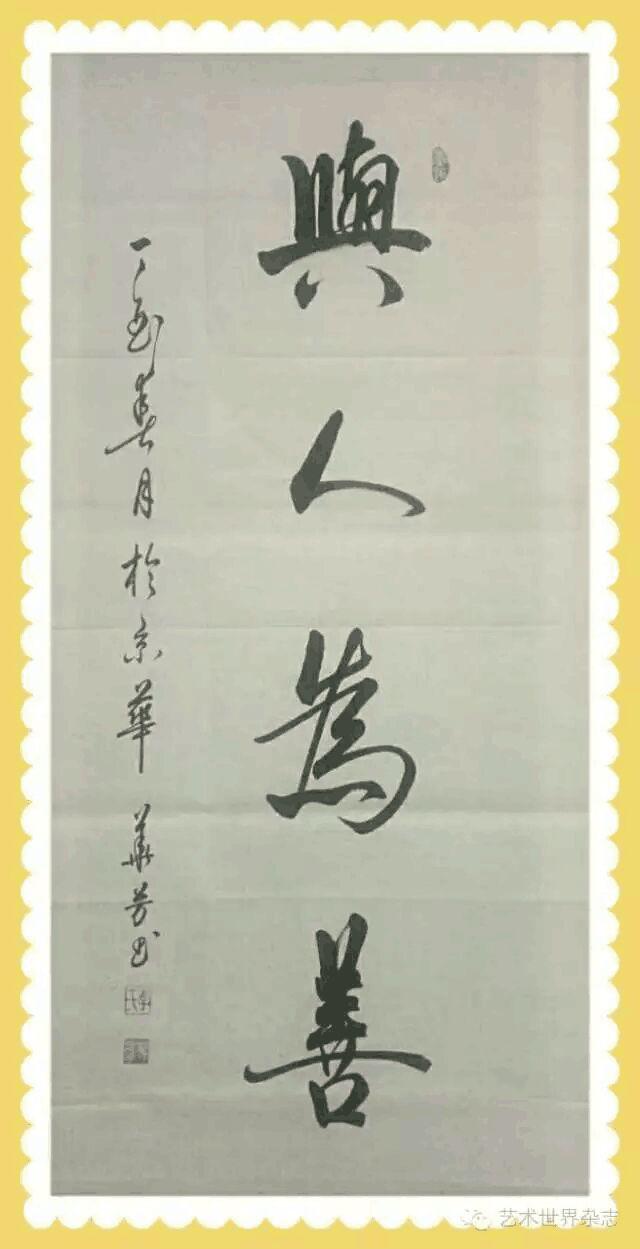 與人為善
丁酉春月於京華 華芳书
艺术世界杂志